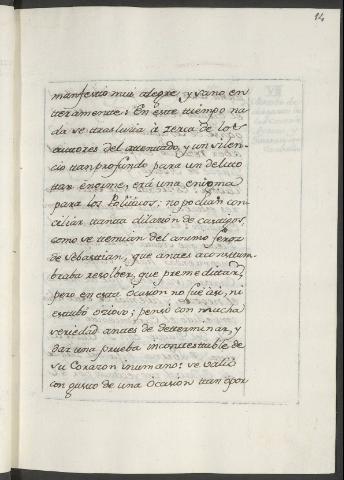 14
manifestò mui alegre, y vano en
teramente: En este tiempo na
da se traslucia à zerca de los
autores del attentado, y un silen
cio tan profundo para un delito
tan énorme, erà una enigma
para los Politicos; no podian con
ciliar tanta dilacion de castigos,
como se temian del animo feroz
de Sebastian, que antes acostum
braba resolber, que premeditar;
pero en esta ocasion no fuè asi, ni
estubó ozioso; pensó con mucha
seriedad antes de determinar, y
dar una prueba incontestable de
su Corazon inumano: se valiò
con gusto de una Ocasion tan opor